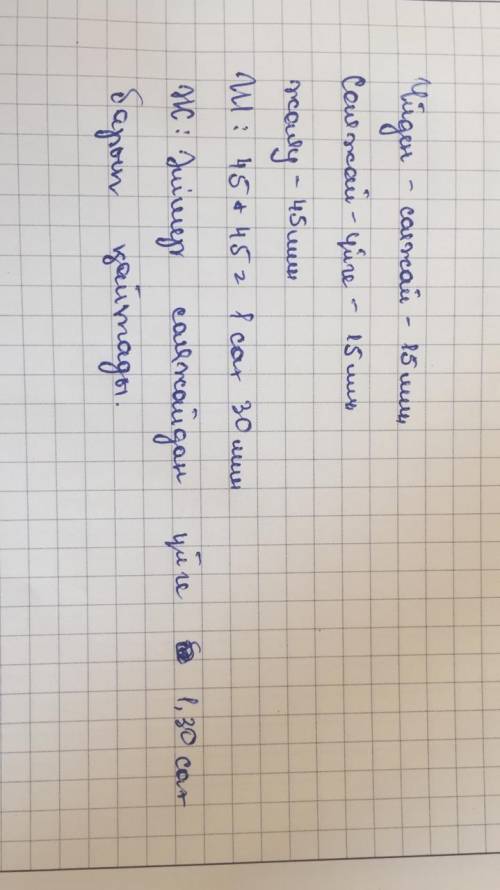 Үйден - саяжай - 15 мин
Саяжай - үйге - 15 мин
жаяу - 45 мин
Ш: 45 + 45 = 1 сағ 30 мин
Ж: саяжайдан үйге 1,30 сағ
барып қайтады.